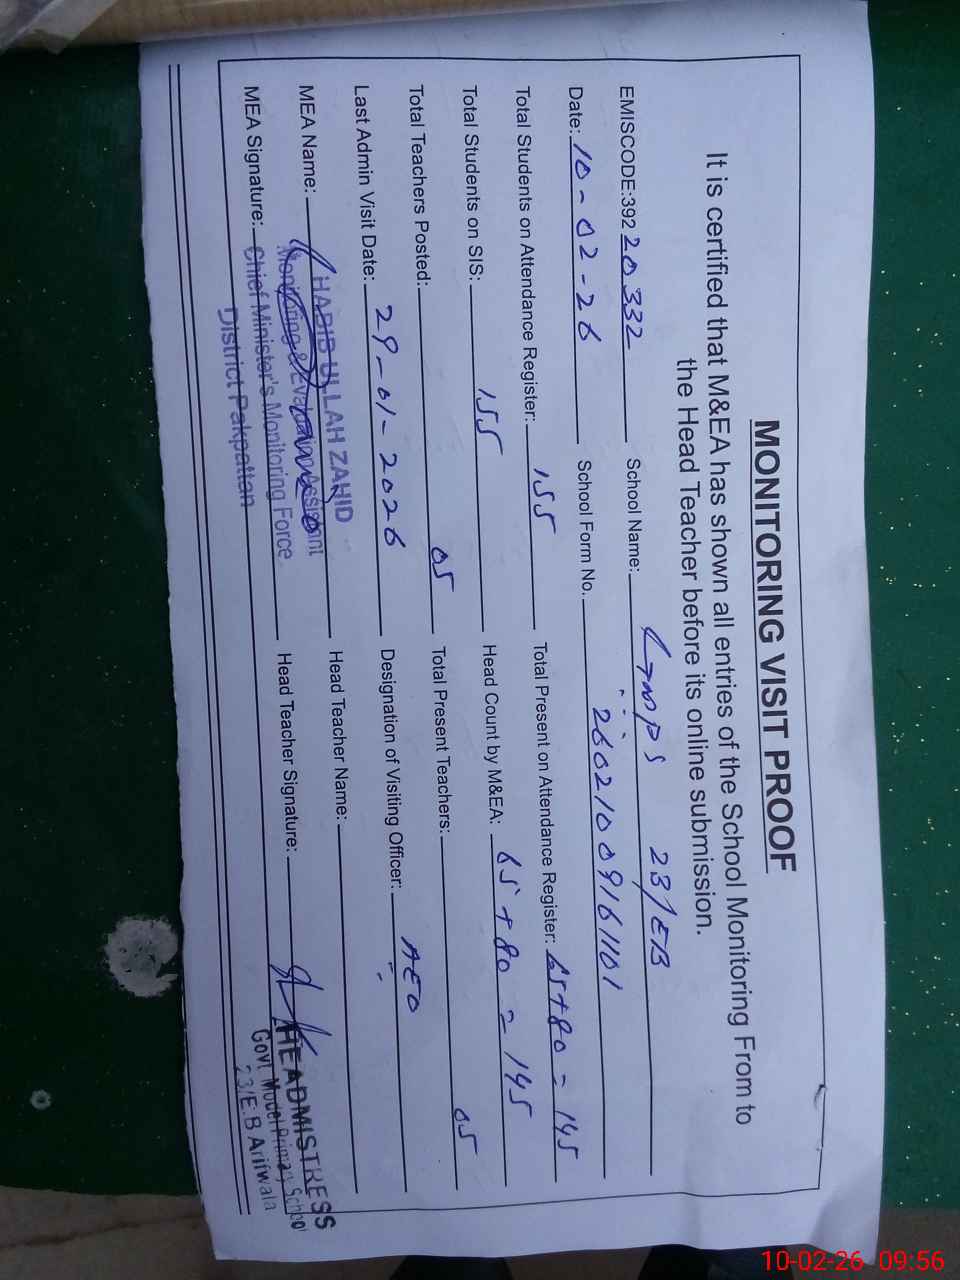 MONITORING VISIT PROOF
It is certified that M&EA has shown all entries of the School Monitoring From to
the Head Teacher before its online submission.
EMISCODE:392 20332 School Name: GMPS 23/EB
Date: 10-02-26 School Form No. 26021009161101
Total Students on Attendance Register: 155 Total Present on Attendance Register: 65+80=145
Total Students on SIS: 155 Head Count by M&EA: 65+80=145
Total Teachers Posted: 05 Total Present Teachers: 05
Last Admin Visit Date: 29-01-2026 Designation of Visiting Officer: AEO
MEA Name: Head Teacher Name:
MEA Signature: Head Teacher Signature:
HABIB ULLAH ZAHID
Monitoring & Evaluation Assistant
Chief Minister's Monitoring Force
District Pakpattan
HEADMISTRESS
Govt Model Primary School
23/E.B Arifwala
10-02-26 09:56